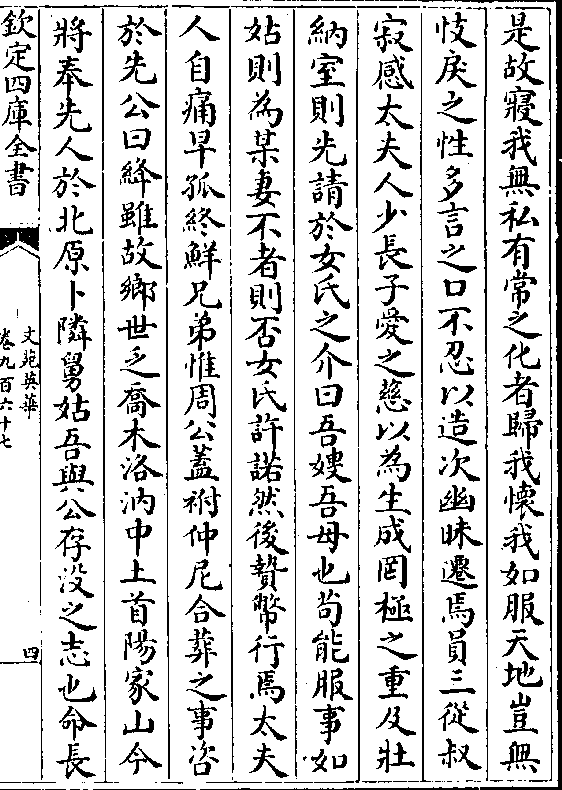 是故寢我無私有常之化者歸我懷我如服天地豈無
忮戾之性多言之口不忍以造次幽昧遷焉員三從叔
寂感太夫人少長子愛之慈以為生成罔極之重及壯
納室則先請於女氏之介曰吾嫂吾母也苟能服事如
姑則為某妻不者則否女氏許諾然後贄幣行焉太夫
人自痛早孤終鮮兄弟惟周公蓋祔仲尼合葬之事咨
於先公曰絳雖故鄉世乏喬木洛汭中土首陽家山今
將奉先人於北原卜隣舅姑吾與公存没之志也命長
欽定四庫全書
文苑英華
卷九百六十七
四